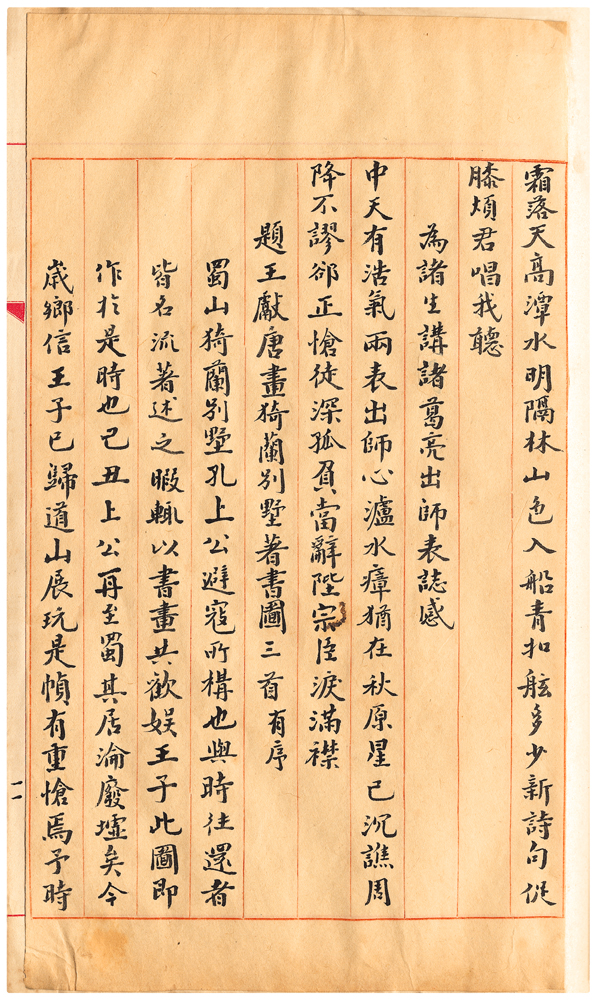 霜落天高潭水明隔林山色入船青扣舷多少新詩句促
膝煩君唱我聽
為諸生講諸葛亮出師表誌感
中天有浩氣兩表出師心瀘水瘴猶在秋原星已沉譙周
降不謬郤正愴徒深孤負當辭陛宗臣淚滿襟
題王獻唐畫猗蘭別墅著書圖三首有序
蜀山猗蘭別墅孔上公避寇所構也與時往還者
皆名流著述之暇輒以書畫共歡娛王子此圖即
作於是時也己丑上公再至蜀其居淪廢墟矣今
歲鄉信王子已歸道山展玩是幀有重愴焉予時
一一